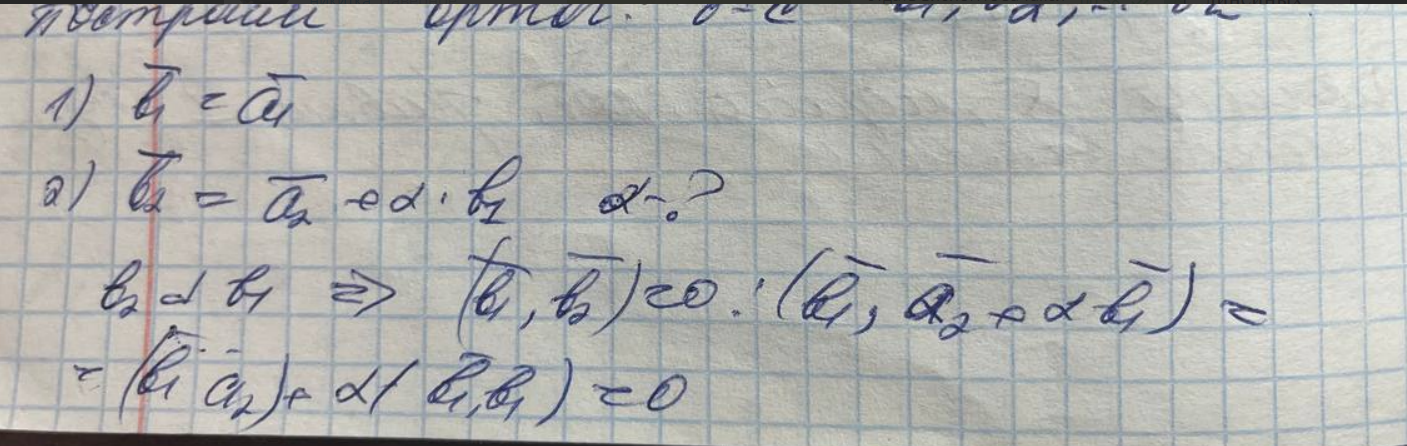 построим ортог.
1) b̅₁ = a̅₁
2) b̅₂ = a̅₂ + α · b₁ α - ?
b₂ ⊥ b₁ ⇒ (b̅₁, b̅₂) = 0 : (b̅₁, a̅₂ + α b̅₁) =
= (b̅₁ a̅₂) + α( b̅₁, b̅₁ ) = 0